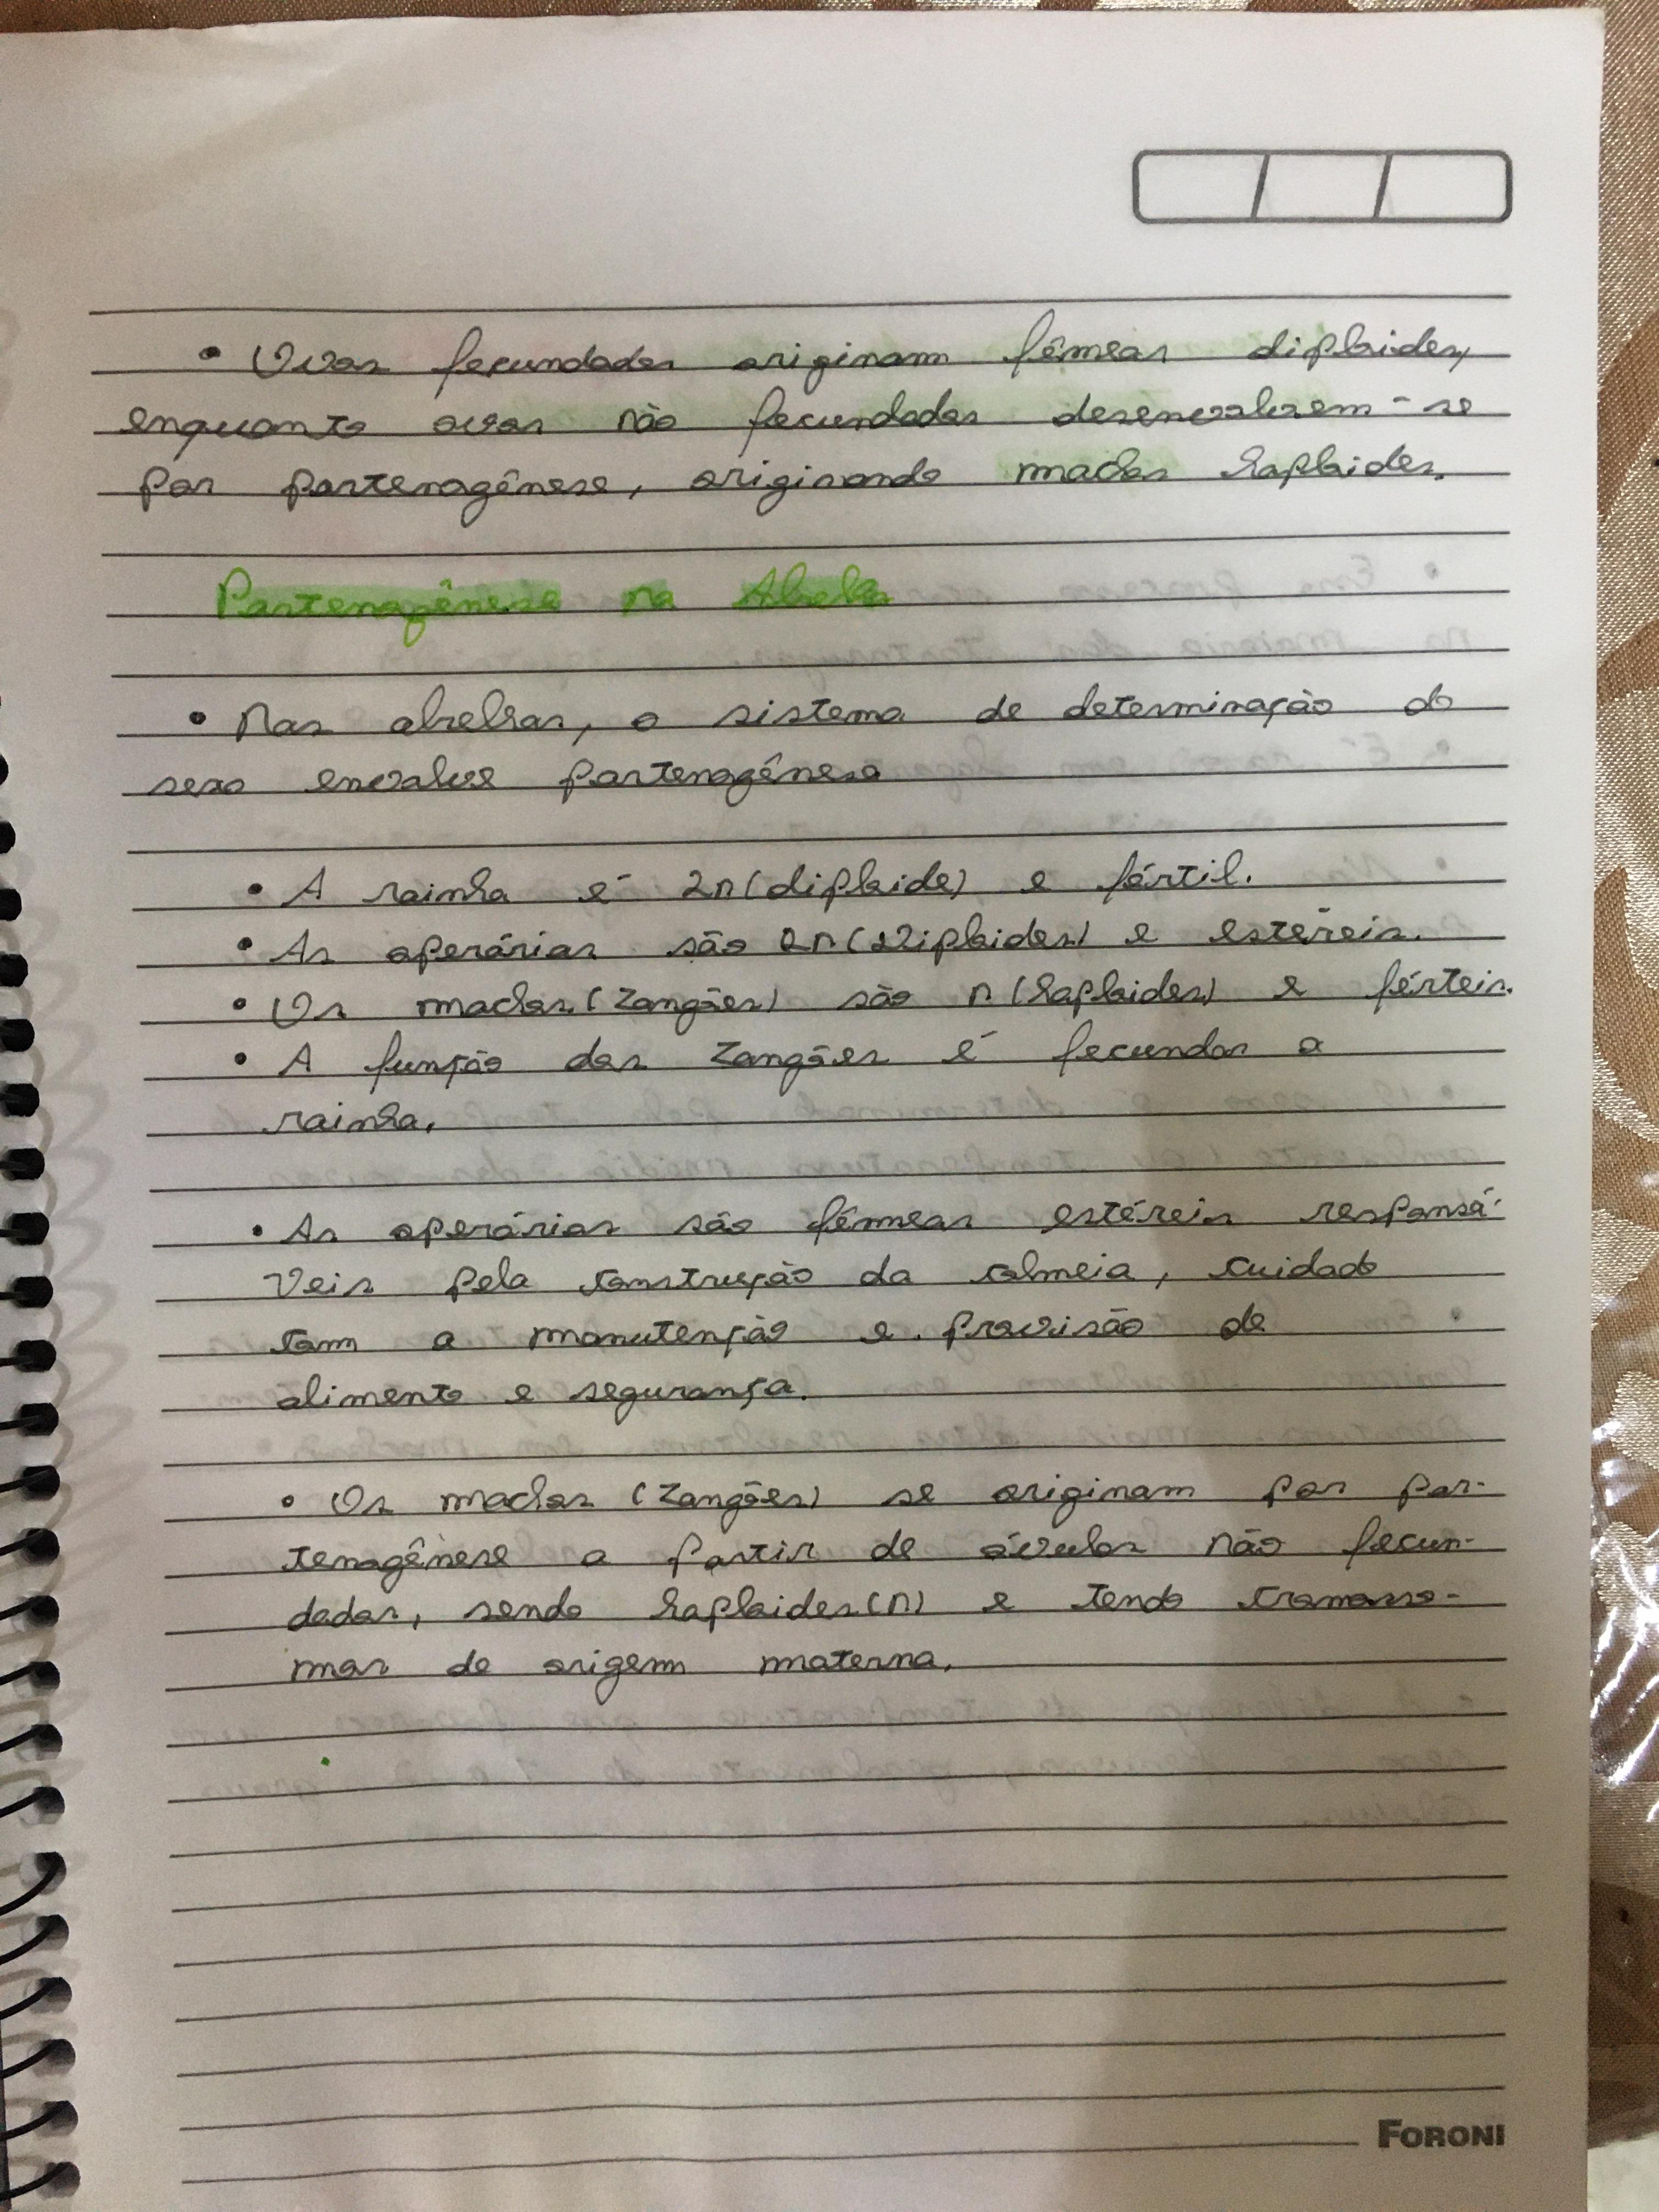 • Ovos fecundados originam fêmeas diploides,
enquanto ovos não fecundados desenvolvem-se
por partenogênese, originando machos haploides.
Partenogênese na Abelha
• Nas abelhas, o sistema de determinação do
sexo envolve partenogênese
• A rainha é 2n (diploide) e fértil.
• As operárias são 2n (diploides) e estéreis.
• Os machos (zangões) são n (haploides) e férteis.
• A função dos zangões é fecundar a
rainha.
• As operárias são fêmeas estéreis responsá-
veis pela construção da colmeia, cuidado
com a manutenção e provisão de
alimento e segurança.
• Os machos (zangões) se originam por par-
tenogênese a partir de óvulos não fecun-
dados, sendo haploides (n) e tendo cromosso-
mos de origem materna.
FORONI